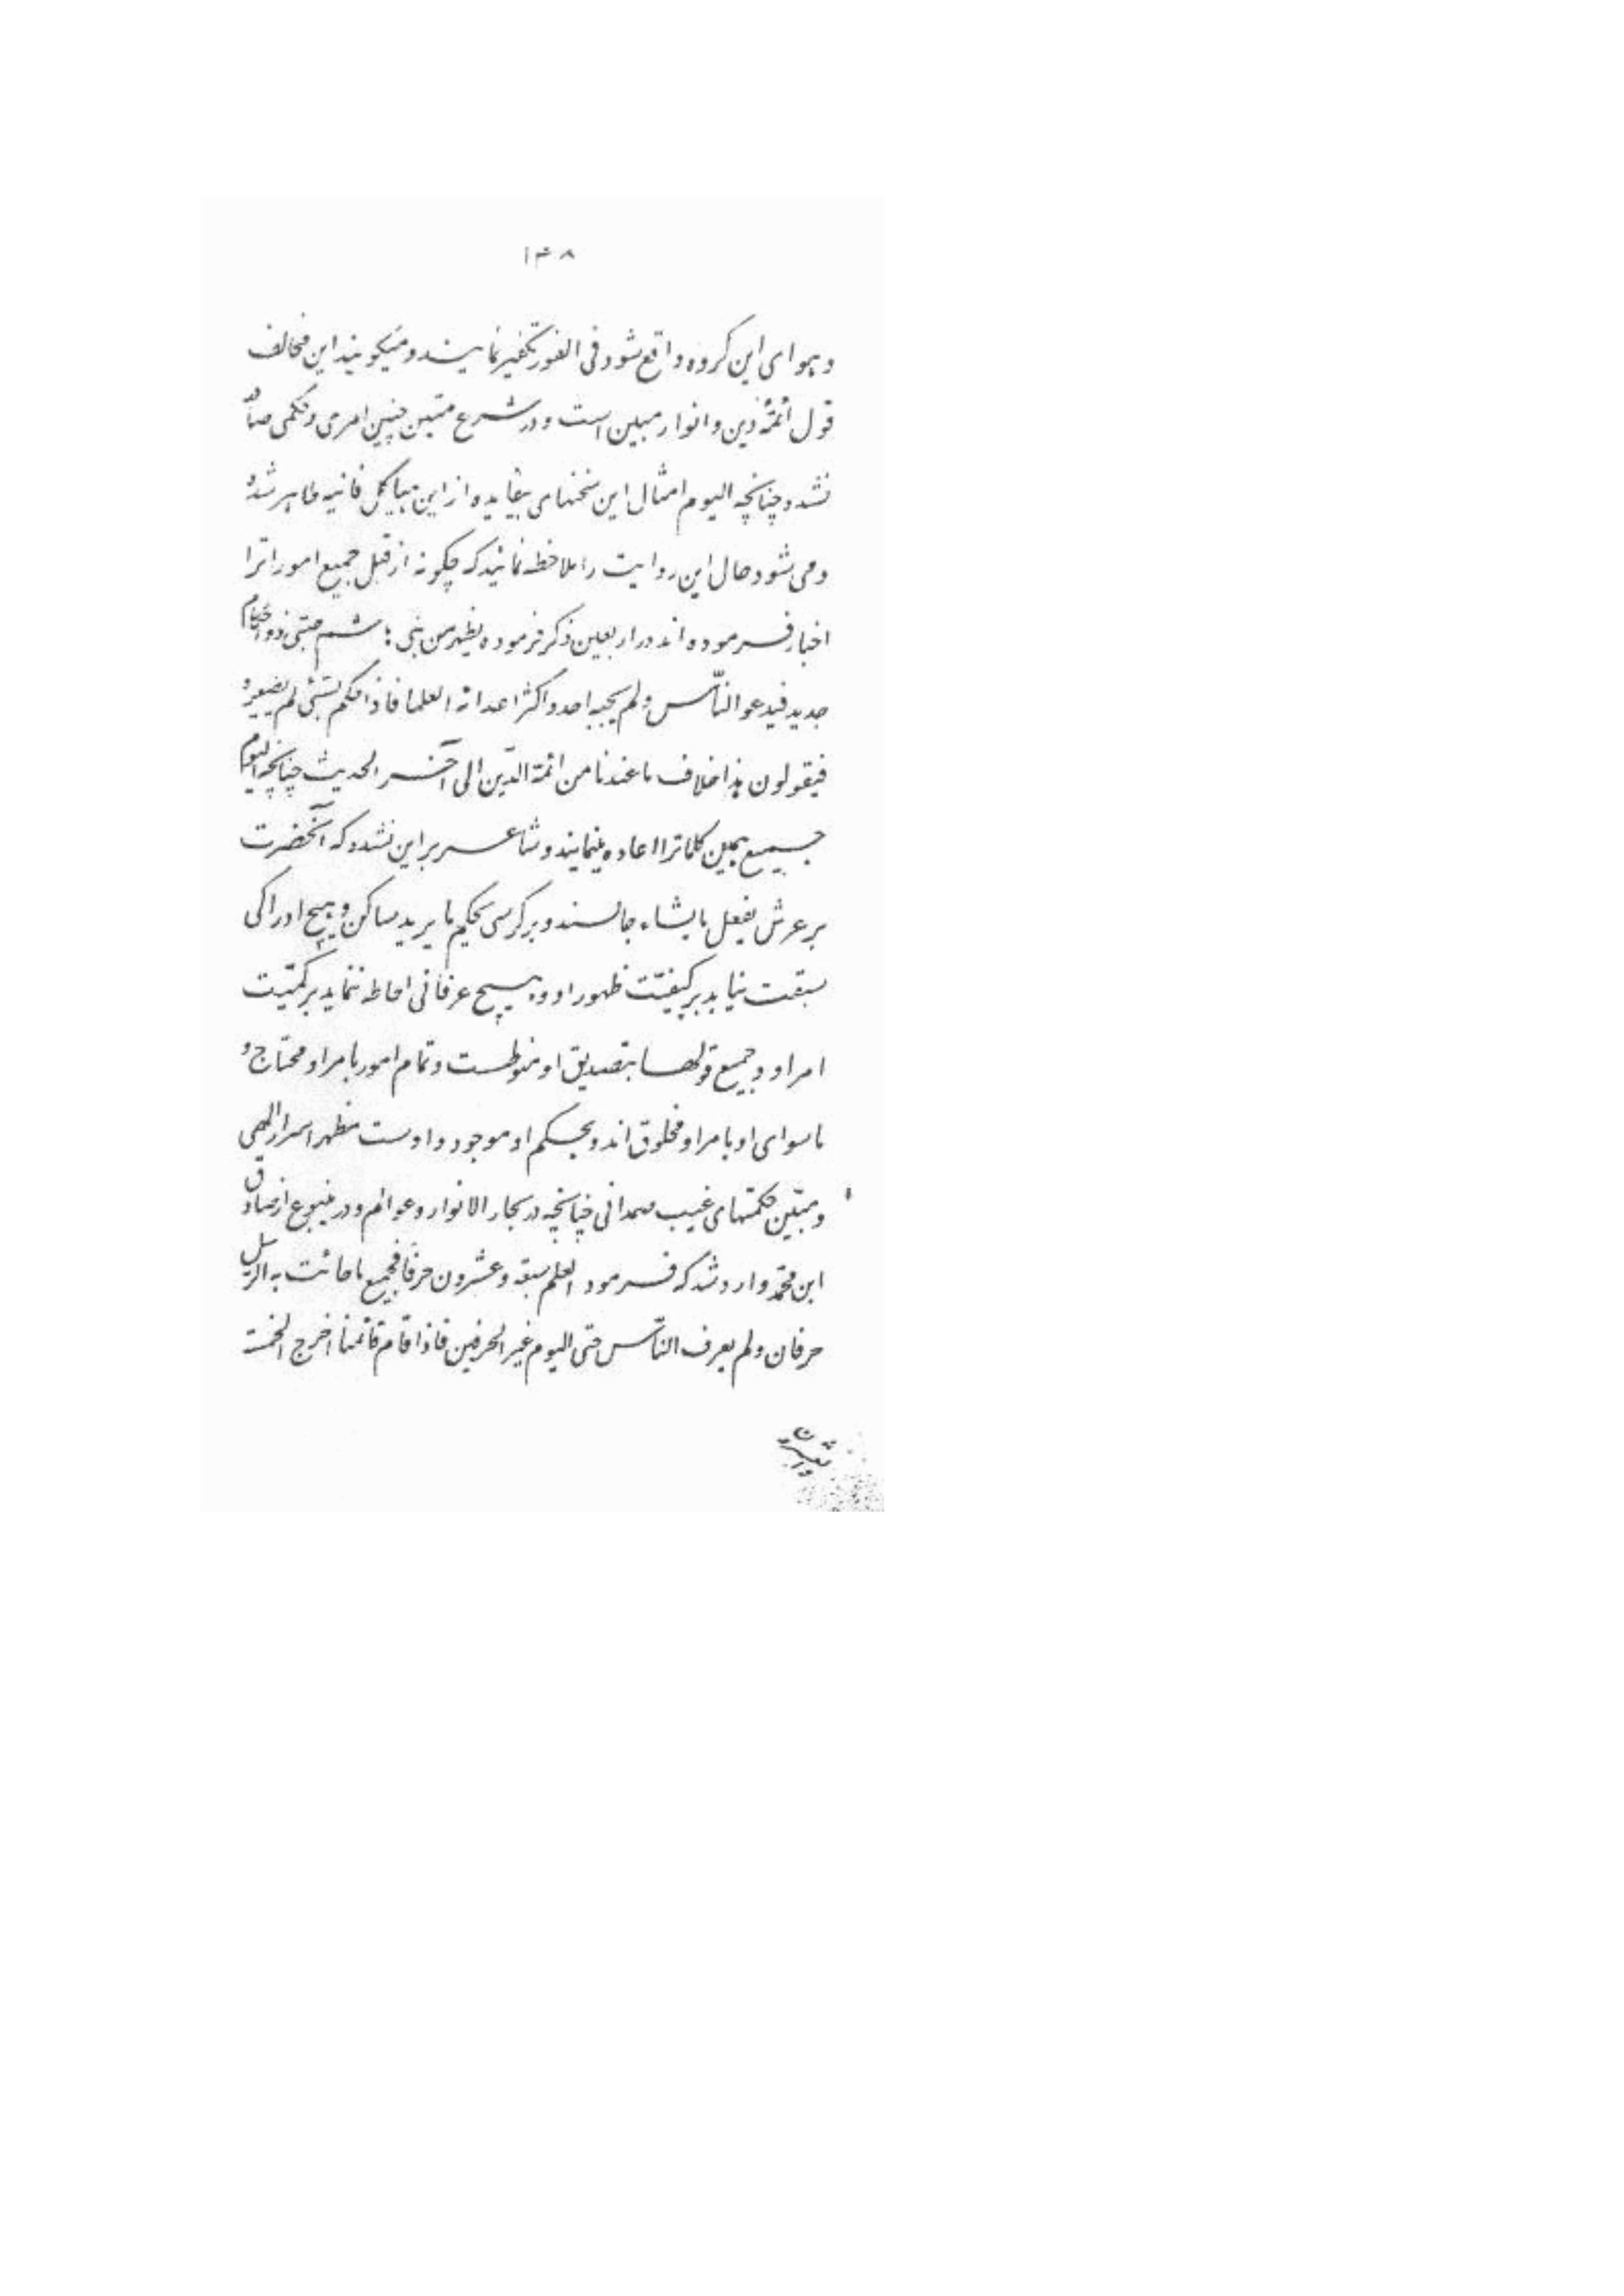 ۱۳۸
و هوای این گروه واقع شود فی الفور تکفیر نمایند و میگویند این مخالف
قول ائمّهٔ دین و انوار مبین است و در شرع متین چنین امری و حکمی صادر
نشده چنانچه الیوم امثال این سخنهای بیفایده از این هیاکل فانیه ظاهر شده و
و می شود حال این روایت را ملاحظه نمائید که چگونه از قبل جمیع اموراترا
اخبار فرموده اند در اربعین ذکر فرموده یظهر من بنی هاشم صبّی ذو احکام
جدید فیدعو النّاس و لم یجبه احد و اکثر اعدائه العلما فاذا حکم بشئی لم یطیعوه
فیقولون هذا خلاف ما عندنا من ائمّة الدّین الی آخر الحدیث چنانچه الیوم
جمیع همین کلماترا اعاده مینمایند و شاعر بر این نشده که آنحضرت
بر عرش یفعل ما یشاء جالسند و بر کرسی یحکم ما یرید ساکن و هیچ ادراکی
سبقت نیابد بر کیفیّت ظهور او و هیچ عرفانی احاطه ننماید بر کمّیّت
امر او و جمیع قولها بتصدیق او منوطست و تمام امور بامر او محتاج و
ما سوای او بامر او مخلوق اند و بحکم او موجود و اوست مظهر اسرار الهی
و مبیّن حکمتهای غیب صمدانی چنانچه در بحار الانوار و عوالم و در ینبوع از صادق
ابن محمّد وارد شد که فرمود العلم سبعة و عشرون حرفاً فجمیع ما جائت به الرسل
حرفان و لم یعرف النّاس حتی الیوم غیر الحرفین فاذا قام قائمنا اخرج الخمسة
و العشرین